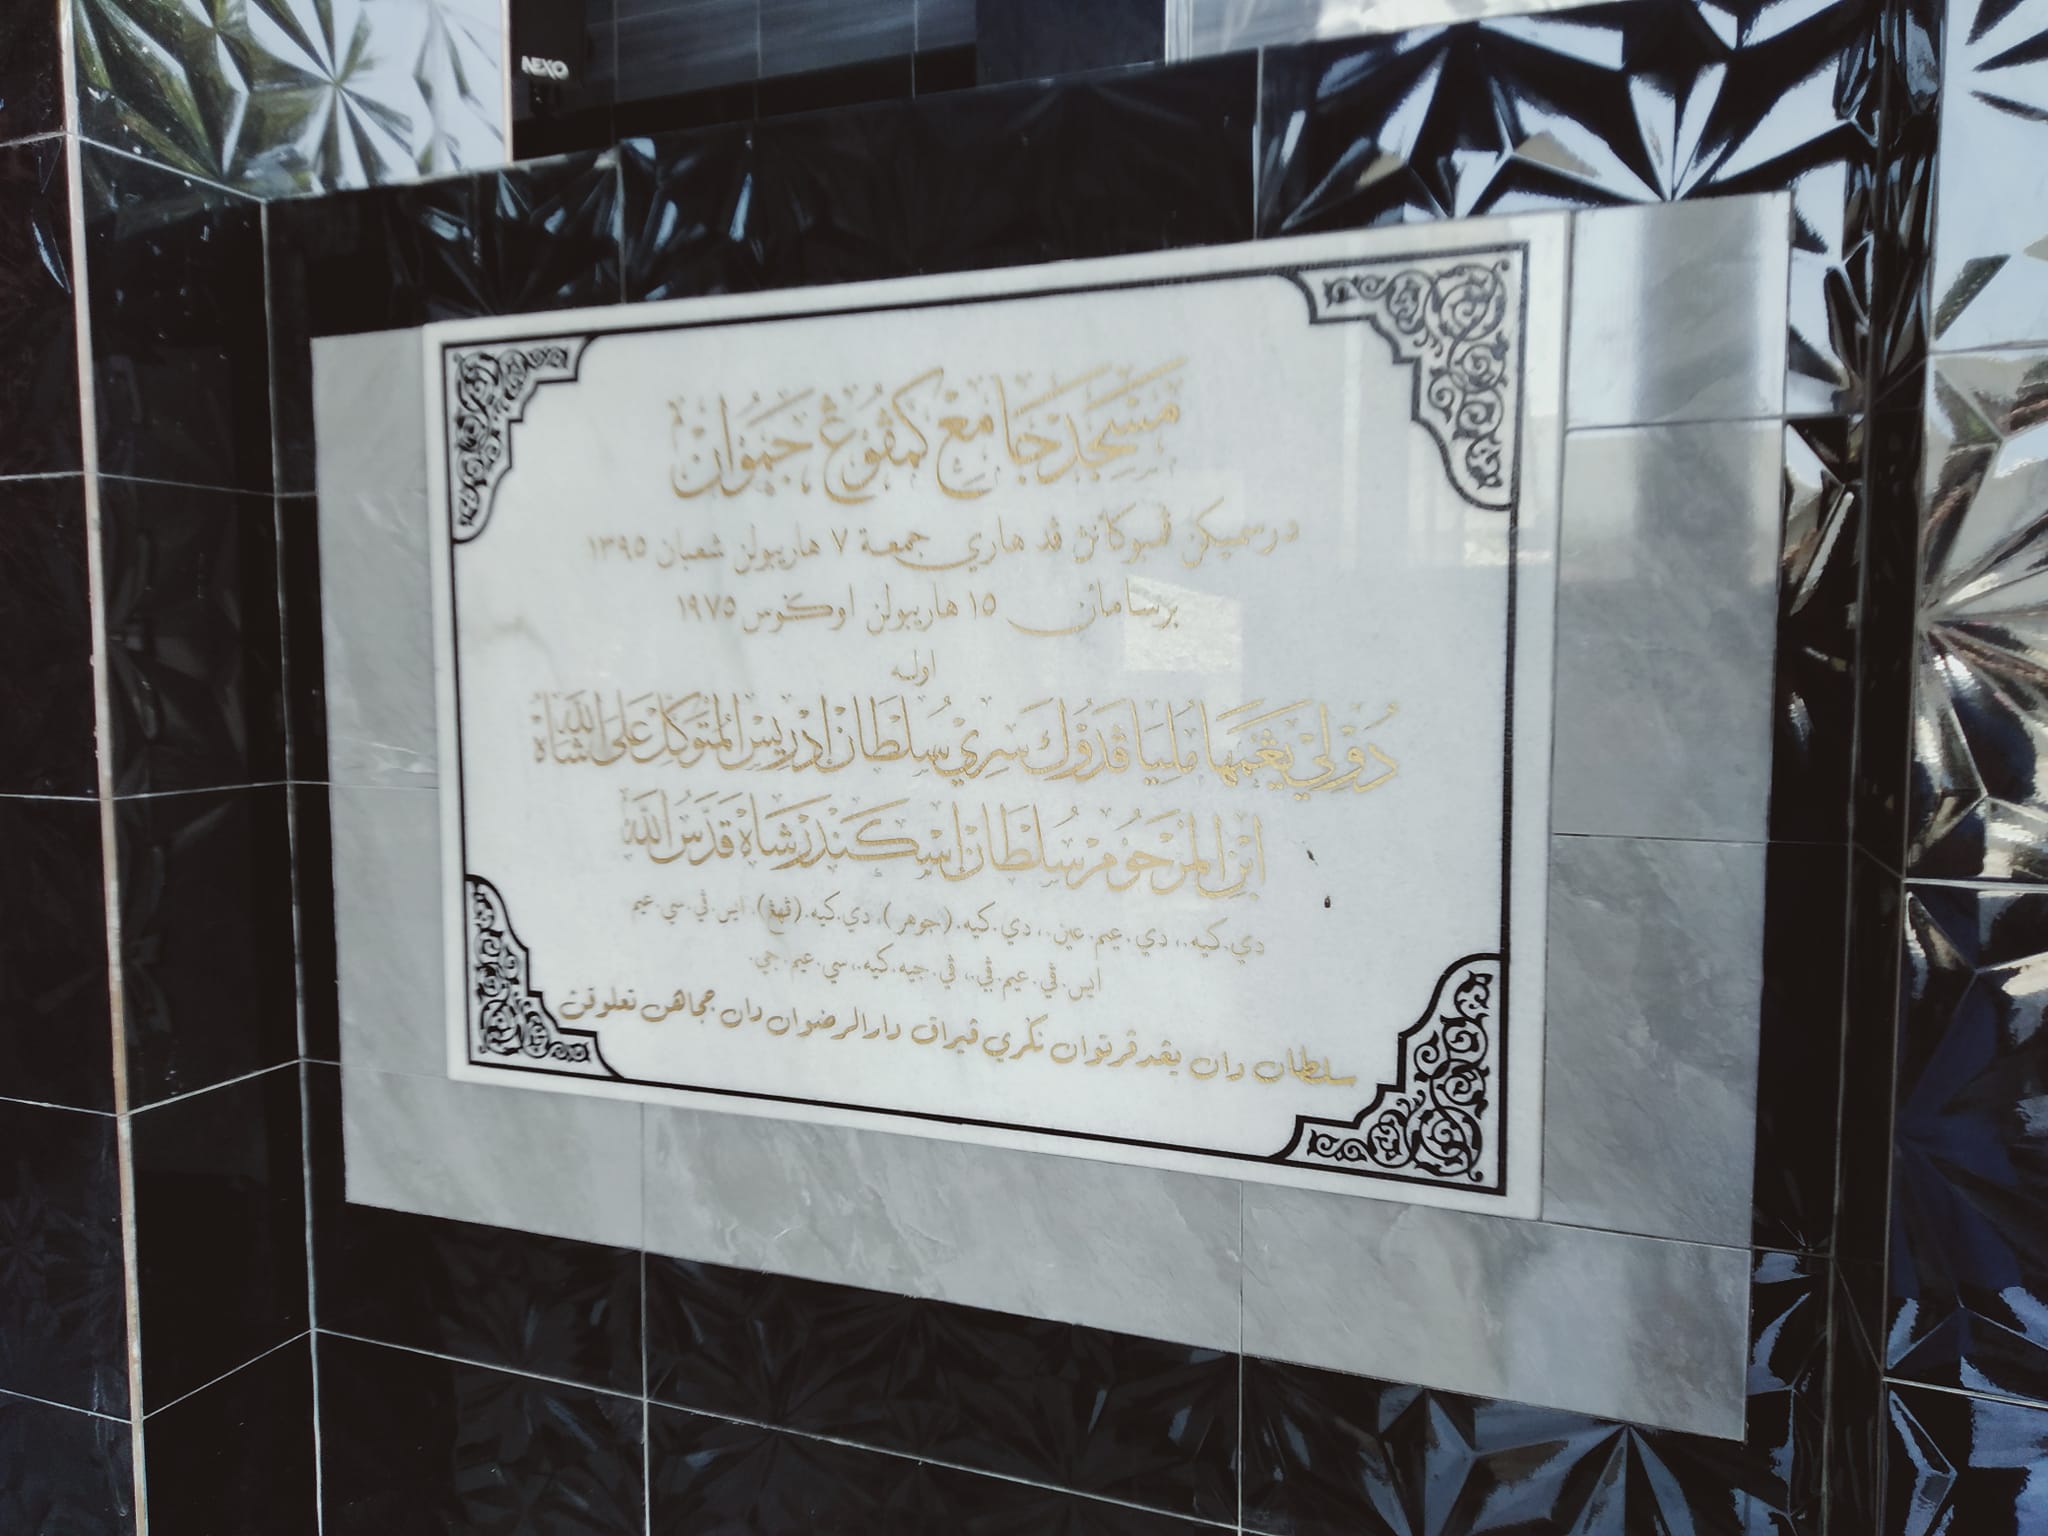 NEXO
مَسْجِدْ جَامِعْ كمڤوڠ جَمُوَانْ
درسميكن ڤمبوكاءنڽ ڤد هاري جمعة ٧ هاريبولن شعبان ١٣٩٥
برسامأن ١٥ هاريبولن اوݢوس ١٩٧٥
اوله
دُوْلِيْ يڠمَهَا مُلِيَا ڤَدُوْكَ سَرِيْ سُلْطَانْ اِدْرِيسْ الْمُتَوَكِّلْ عَلَى اللهْ شَاهْ
اِبْنِ الْمَرْحُوْمْ سُلْطَانْ اِسْكَنْدَرْ شَاهْ قَدَّسَ اللهْ
دي.كيه.، دي.عيم.عين.، دي.كيه. (جوهر)، دي.كيه. (ڤهڠ)، ايس.ڤي.سي.عيم.
ايس.ڤي.عيم.ڤي.، ڤي.جيه.كيه.، سي.عيم.جي.
سلطان دان يڠدڤرتوان نݢري ڤيراق دارالرضوان دان ججاهن تعلوقڽ